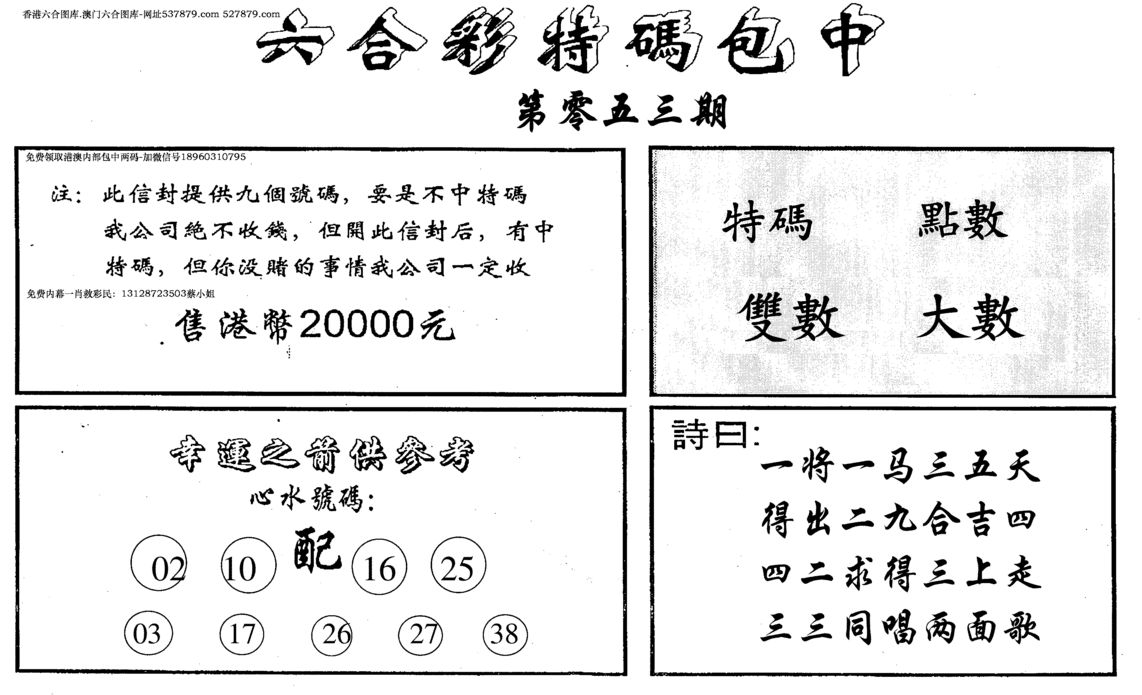 香港六合图库.澳门六合图库-网址537879.com 527879.com
六合彩特碼包中
第零五三期
免费领取港澳内部包中两码-加微信号18960310795
注：此信封提供九個號碼，要是不中特碼
我公司絶不收錢，但開此信封后，有中
特碼，但你没賭的事情我公司一定收
免费内幕一肖救彩民：13128723503蔡小姐
售港幣20000元
特碼 點數
雙數 大數
幸運之箭供參考
心水號碼：
02 10 配 16 25
03 17 26 27 38
詩曰：
一将一马三五天
得出二九合吉四
四二求得三上走
三三同唱两面歌